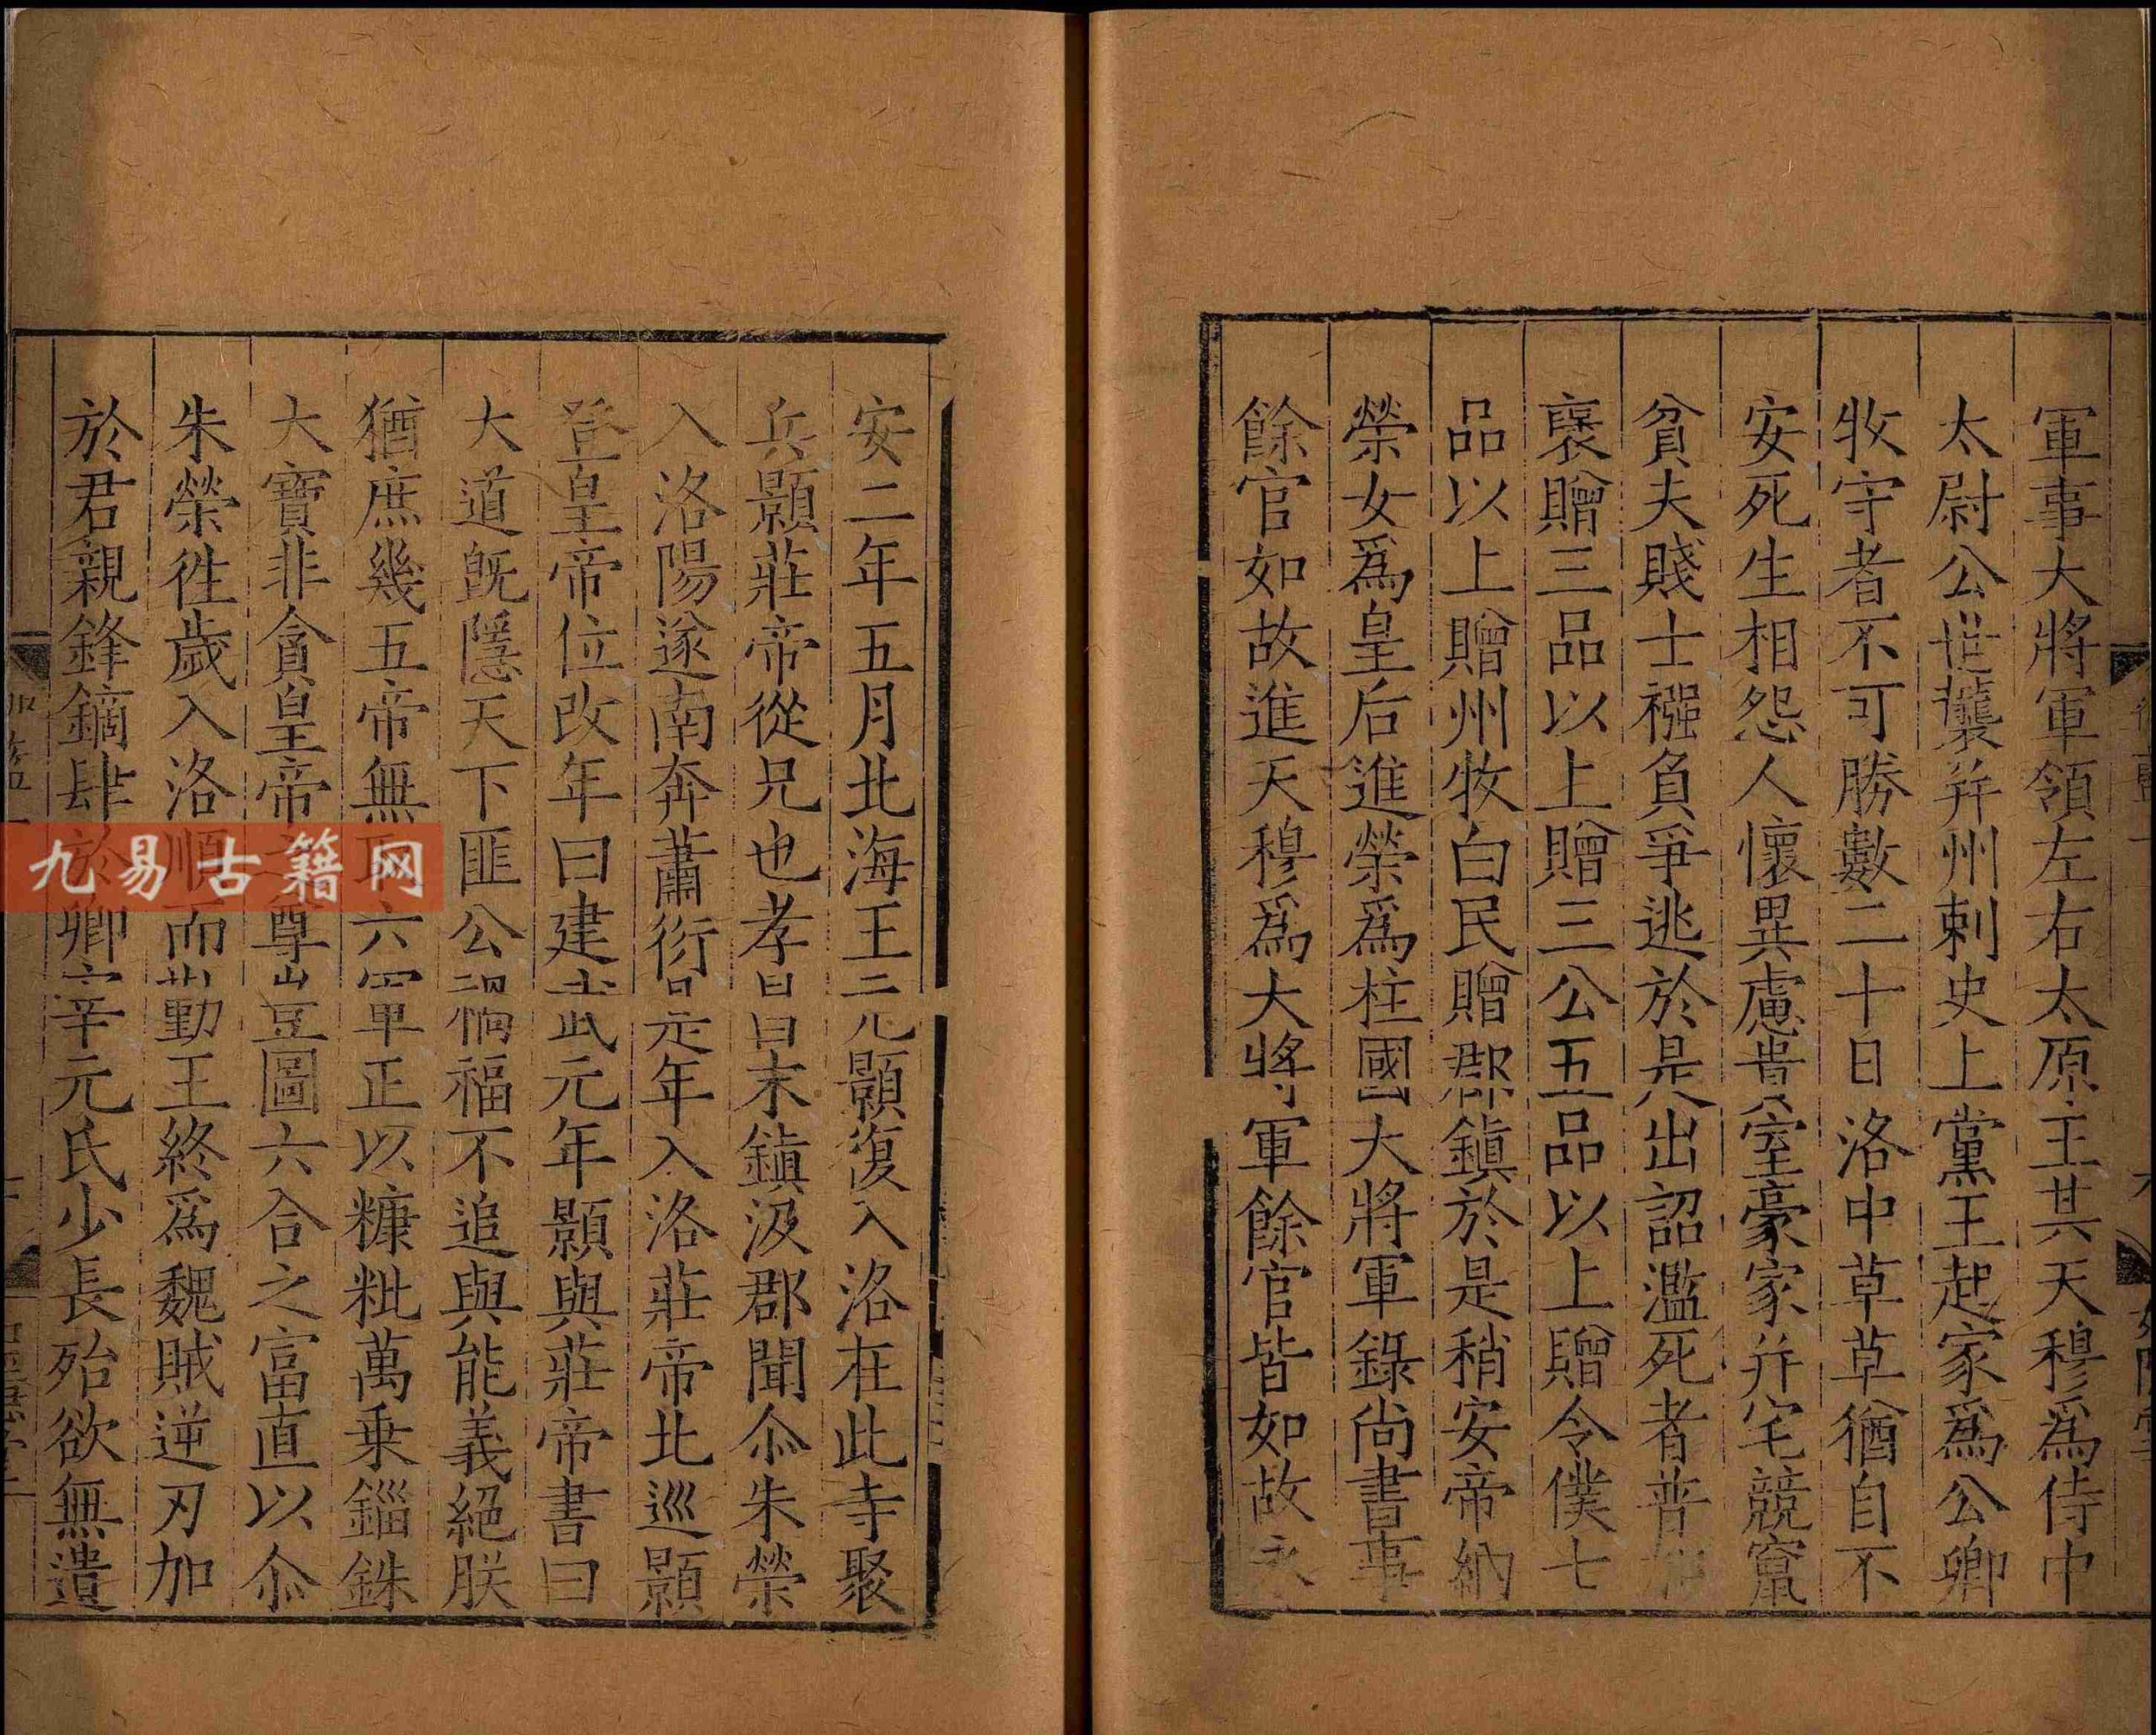 軍事大將軍領左右太原王其天穆爲侍中
太尉公世襲并州刺史上黨王起家爲公卿
牧守者不可勝數二十日洛中草草猶自不
安死生相怨人懷異慮貴室豪家并宅競竄
貧夫賤士襁負爭逃於是出詔濫死者普加
褒贈三品以上贈三公五品以上贈令僕七
品以上贈州牧白民贈郡鎮於是稍安帝納
榮女爲皇后進榮爲柱國大將軍錄尚書事
餘官如故進天穆爲大將軍餘官皆如故永
安二年五月北海王元顥復入洛在此寺聚
兵顥莊帝從兄也孝昌末鎮汲郡聞尒朱榮
入洛陽遂南奔蕭衍是年入洛莊帝北巡顥
登皇帝位改年曰建武元年顥與莊帝書曰
大道既隱天下匪公禍福不追與能義絕朕
猶庶幾五帝無取六軍正以糠粃萬乘錙銖
大寶非貪皇帝之尊豈圖六合之富直以尒
朱榮徃歲入洛順而勤王終爲魏賊逆刃加
於君親鋒鏑肆於卿宰元氏少長殆欲無遺
九易古籍网